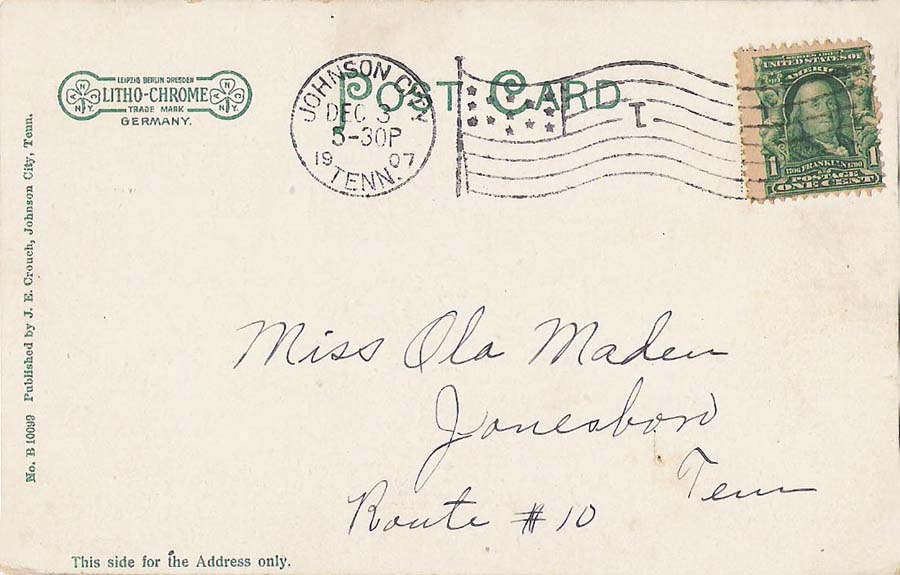 LEIPZIG BERLIN DRESDEN
LITHO-CHROME
TRADE MARK
GERMANY.
N.Y.
N.Y.
POST CARD
JOHNSON CITY,
DEC 3
5-30P
1907
TENN.
1
SERIES 1902
UNITED STATES OF
AMERICA
1706 FRANKLIN 1790
POSTAGE
1 ONE CENT 1
Miss Ola Maden
Jonesboro
Tenn
Route #10
No. B 10099 Published by J. E. Crouch, Johnson City, Tenn.
This side for the Address only.